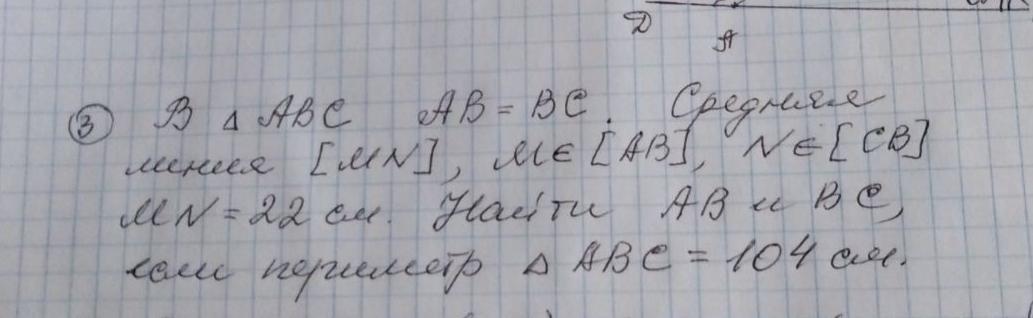 D
A
③ В △ ABC AB = BC. Средняя
линия [MN], M ∈ [AB], N ∈ [CB]
MN = 22 см. Найти AB и BC,
если периметр △ ABC = 104 см.